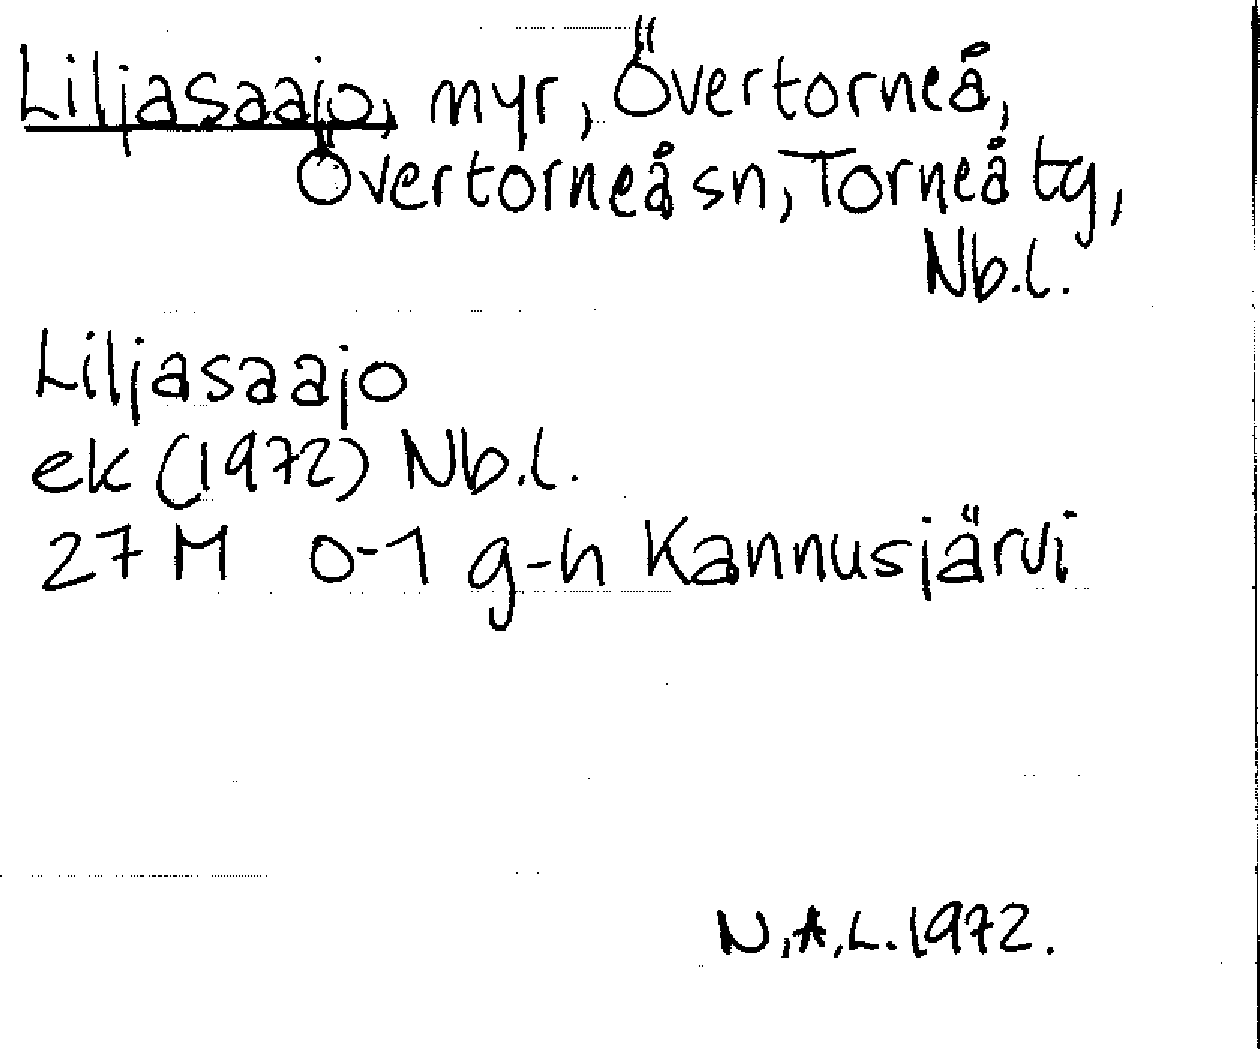 Liljasaajo, myr, Övertorneå,
Övertorneå sn, Torneå tg,
Nb.l.
Liljasaajo
ek (1972) Nb.l.
27 M 0-1 g-h Kannusjärvi
N.A.L. 1972.